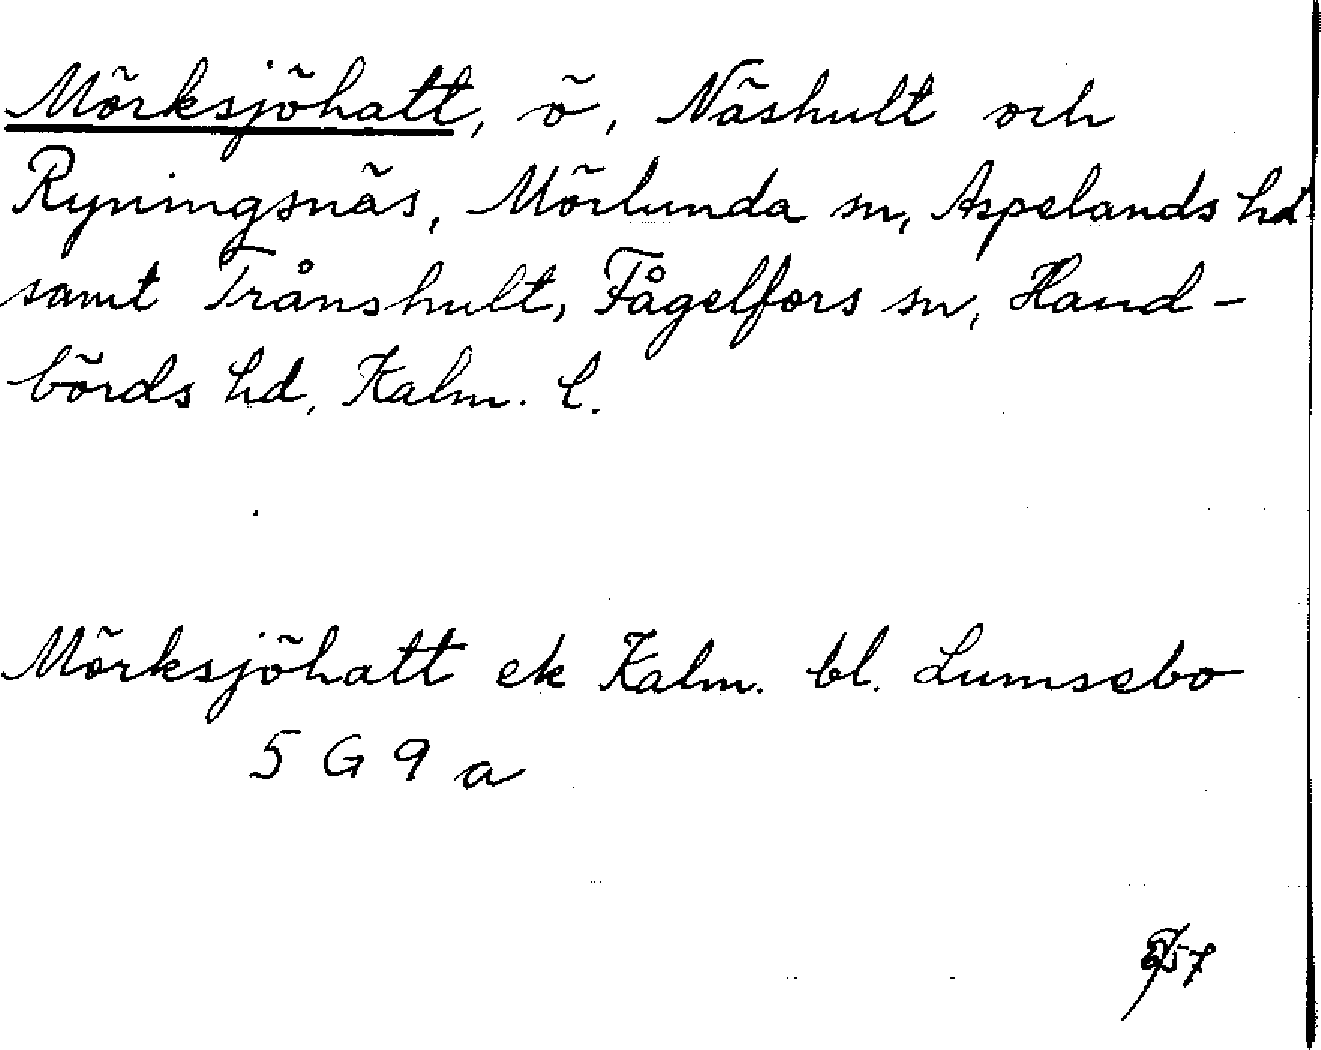 Mörksjöhatt, ö, Näshult och
Ryningsnäs, Mörlunda sn, Aspelands hd
samt Trånshult, Fågelfors sn, Hand-
börds hd, Kalm. l.
Mörksjöhatt ek Kalm. bl. Lumsebo
5 G 9 a